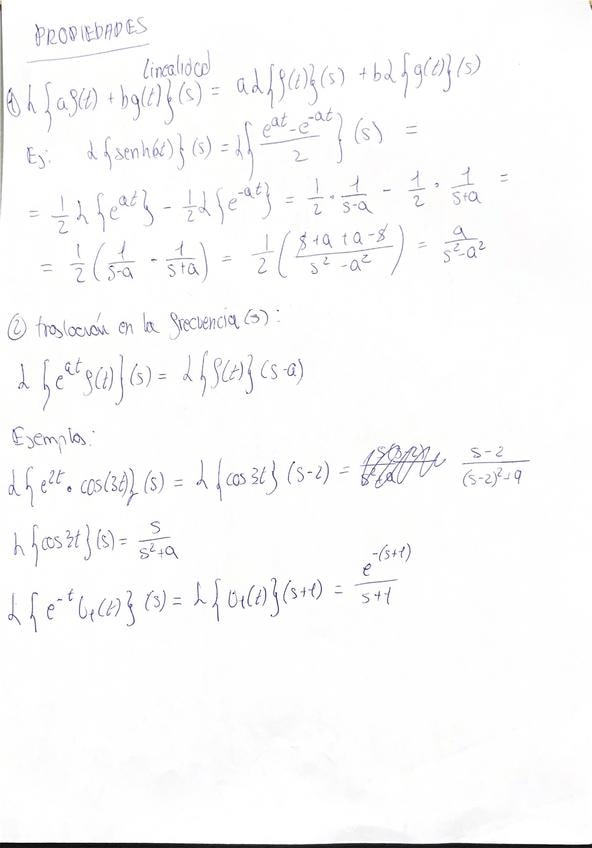 PROPIEDADES
linealidad
① L{af(t) + bg(t)}(s) = aL{f(t)}(s) + bL{g(t)}(s)
Ej: L{senh(at)}(s) = L{(e^{at} - e^{-at})/2}(s) =
= 1/2 L{e^{at}} - 1/2 L{e^{-at}} = 1/2 · 1/(s-a) - 1/2 · 1/(s+a) =
= 1/2 (1/(s-a) - 1/(s+a)) = 1/2 ((s+a+a-s)/(s²-a²)) = a/(s²-a²)
② traslación en la frecuencia (s):
L{e^{at} f(t)}(s) = L{f(t)}(s-a)
Ejemplos:
L{e^{2t} · cos(3t)}(s) = L{cos 3t}(s-2) = (s-2)/((s-2)²+9)
L{cos 3t}(s) = s/(s²+9)
L{e^{-t} U₁(t)}(s) = L{U₁(t)}(s+1) = e^{-(s+1)}/(s+1)